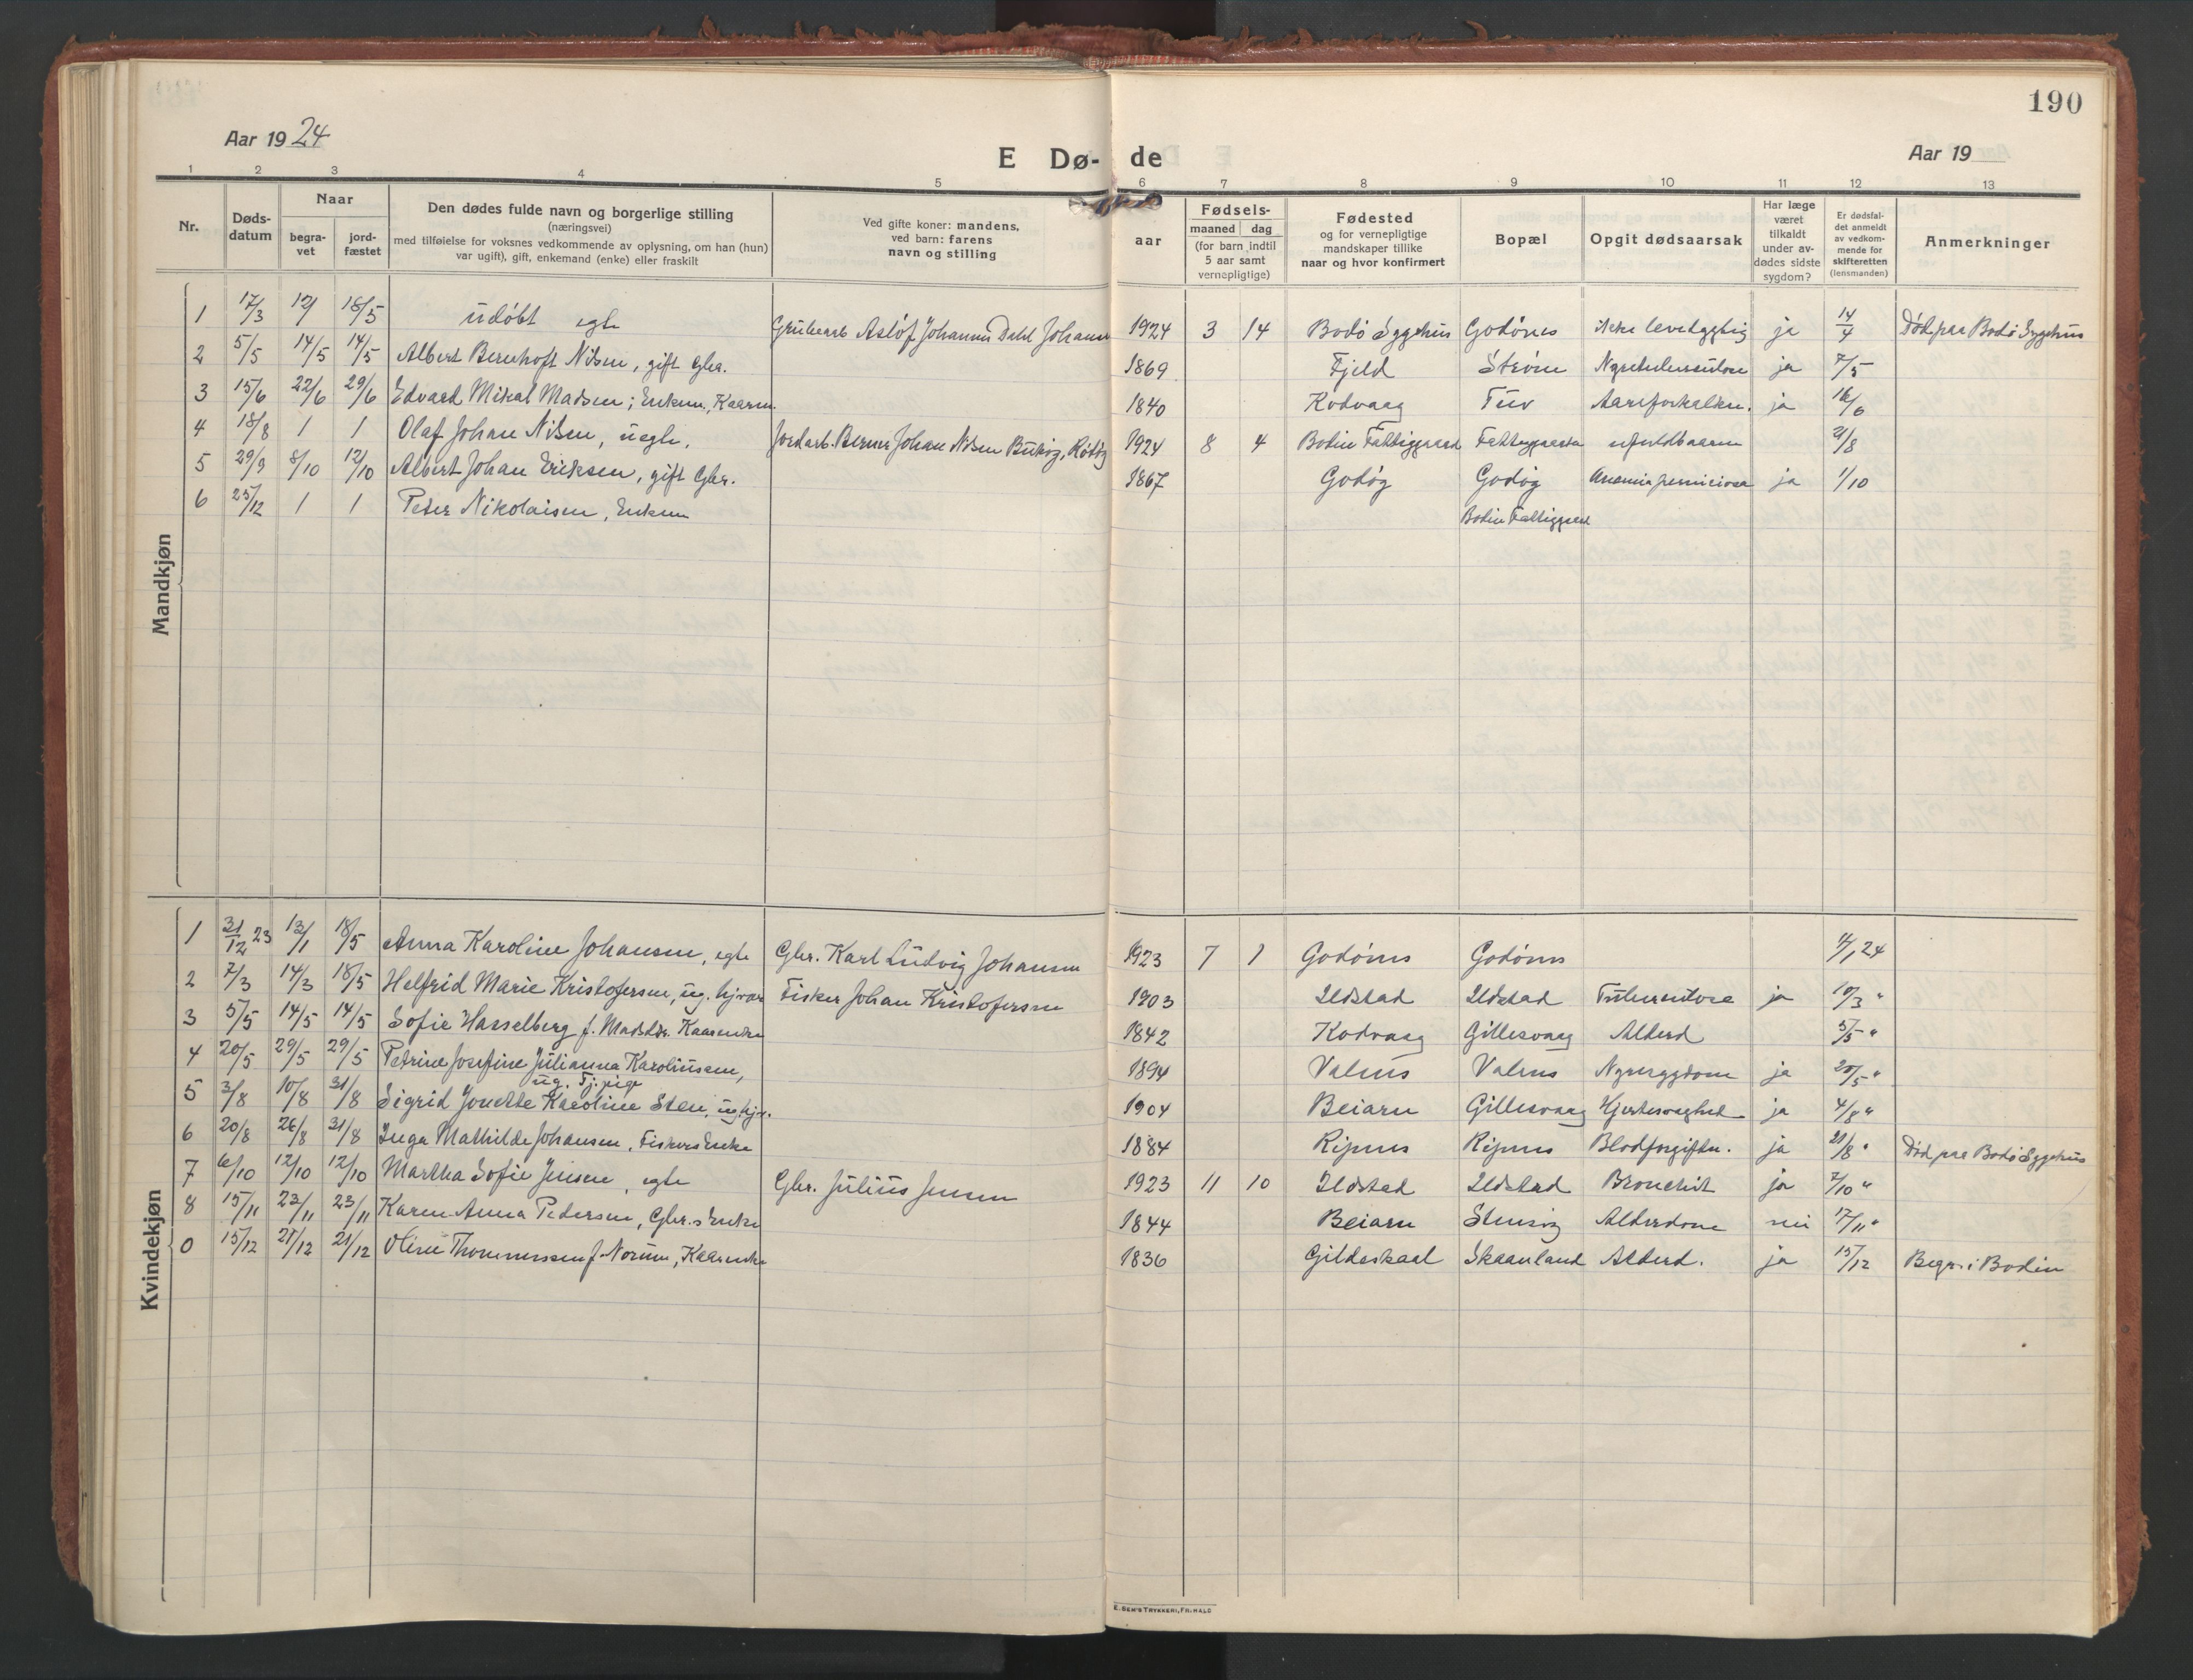 190
Aar 1924
E Dø- de
Aar 19
1 2 3 4 5 6 7 8 9 10 11 12 13
Nr.
Døds-
datum
Naar
begra-
vet
jord-
fæstet
Den dødes fulde navn og borgerlige stilling
(næringsvei)
med tilføielse for voksnes vedkommende av oplysning, om han (hun)
var ugift), gift, enkemand (enke) eller fraskilt
Ved gifte koner: mandens,
ved barn: farens
navn og stilling
Fødsels-
aar
maaned dag
(for barn indtil
5 aar samt
vernepligtige)
Fødested
og for vernepligtige
mandskaper tillike
naar og hvor konfirmert
Bopæl
Opgit dødsaarsak
Har læge
været
tilkaldt
under av-
dødes sidste
sygdom?
Er dødsfal-
det anmeldt
av vedkom-
mende for
skifteretten
(lensmanden)
Anmerkninger
Mandkjøn
1 17/3 18/5 udøbt egte Johannes Dahl 1924 3 14 Bodø Sygehus Godønes ikke levedygtig ja 14/4 Død paa Bodø Sygehus
2 5/5 14/5 14/5 Albert Bernhoft Nilsen, gift Gbr. 1869 Fjeld Strøm Nyretuberculose ja 7/5
3 15/6 22/6 29/6 Edvard Mikal Madsen; Enkem., Kaarm. 1840 Kodvaag Tuv Aareforkalkn. ja 16/6
4 18/8 1 1 Olaf Johan Nilsen, uegte. Jordarb. Berner Johan Nilsen 1924 8 4 Bodin Fattiggaard Fattiggaarden ufuldbaaren 21/8
5 29/9 8/10 12/10 Albert Johan Eriksen, gift Gbr. 1867 Godøy Godøy Anemia perniciosa ja 1/10
6 25/12 1 1 Peter Nikolaisen, Enkem Bodin Fattiggaard
Kvindekjøn
1 31/12 23 13/1 18/5 Anna Karoline Johansen, egte Gbr. Karl Ludvig Johansen 1923 7 1 Godønes Godønes 11/1 24
2 7/3 14/3 18/5 Helfrid Marie Kristofersen, ug. hjvær Fisker Johan Kristofersen 1903 Ildstad Ildstad Tuberculose ja 10/3 "
3 5/5 14/5 14/5 Sofie Hasselberg f. Madsdtr. Kaarenke 1842 Kodvaag Gillesvaag Alderd 5/5 "
4 20/5 29/5 29/5 Petrine Josefine Julianna Karoliussen,
ug. Tj.pige 1894 Valnes Valnes Nyresygdom ja 28/5 "
5 3/8 10/8 31/8 Sigrid Jonette Karoline Sten, ug. hjv. 1904 Beiarn Gillesvaag Hjertesvaghed ja 4/8 "
6 20/8 26/8 31/8 Inga Mathilde Johansen, Fiskers Enke 1884 Ripnes Ripnes Blodforgiftn. ja 21/8 " Død paa Bodø Sygehus
7 6/10 12/10 12/10 Martha Sofie Jensen, egte Gbr. Julius Jensen 1923 11 10 Ildstad Ildstad Bronchit ja 7/10 "
8 15/11 23/11 23/11 Karen Anna Pedersen, Gbr.s Enke 1844 Beiarn Stensøy Alderdom nei 17/11 "
0 15/12 21/12 21/12 Oline Thommessen f. Norum, Kaarenke 1836 Gildeskaal Skaanland Alderd. ja 15/12 Begr. i Bodin
E. SEM'S TRYKKERI, FR.HALD